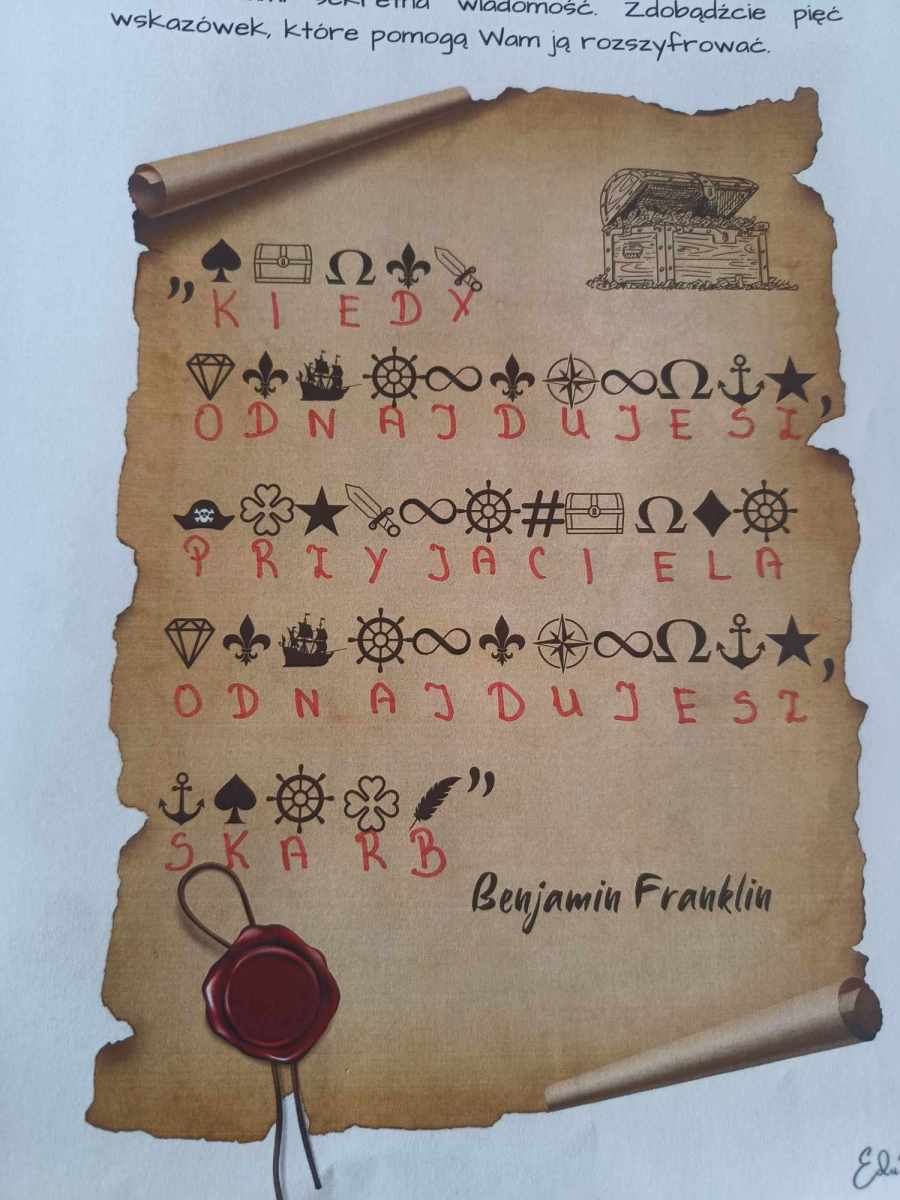 sekretna wiadomość. Zdobądźcie pięć
wskazówek, które pomogą Wam ją rozszyfrować.
„KIEDY
ODNAJDUJESZ,
PRZYJACIELA
ODNAJDUJESZ,
SKARB”
Benjamin Franklin